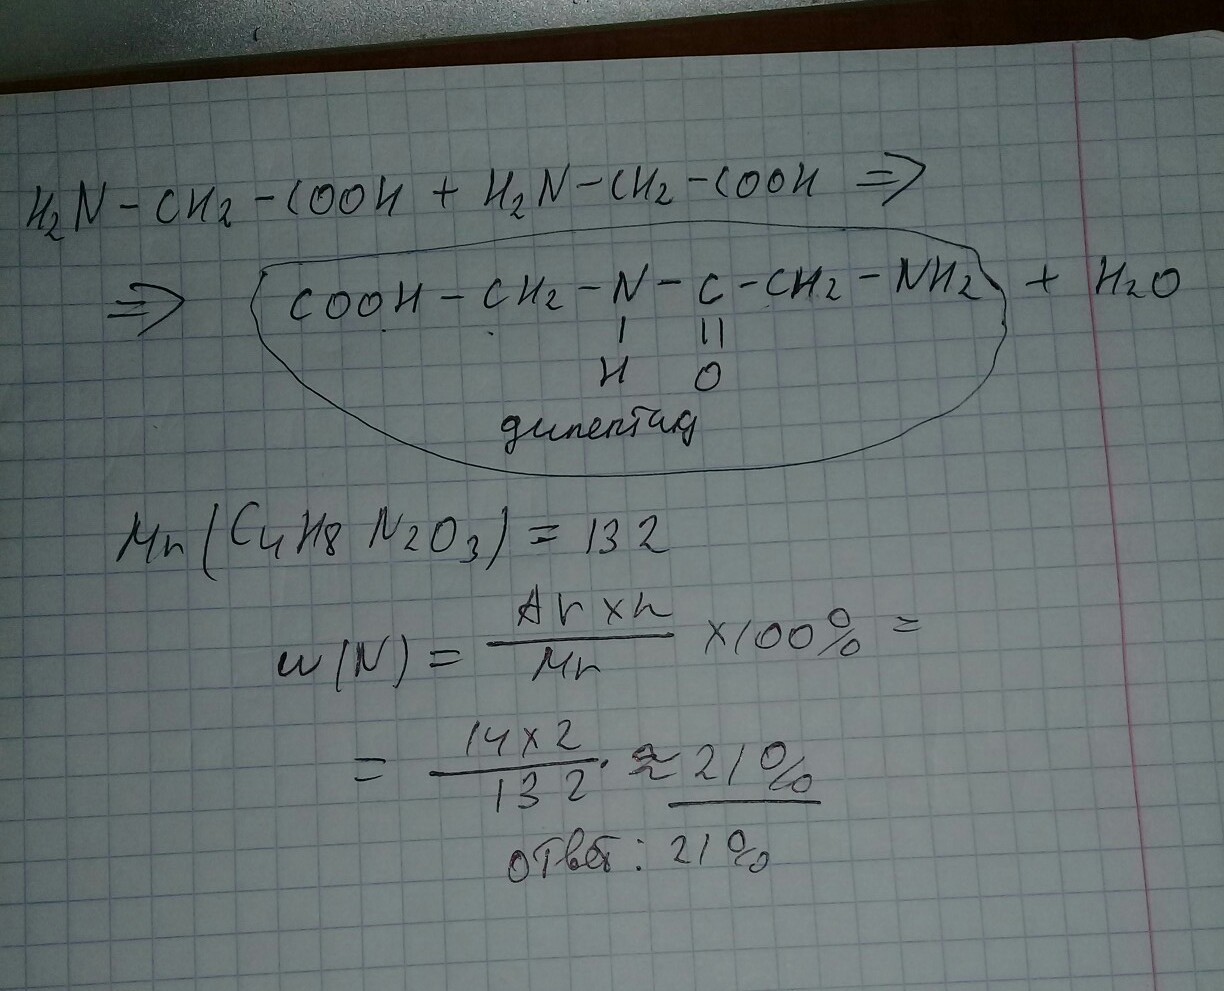 H₂N-CH₂-COOH + H₂N-CH₂-COOH ⇒
⇒ COOH-CH₂-N-C-CH₂-NH₂ + H₂O
| ||
H O
дипептид
Mr(C₄H₈N₂O₃) = 132
w(N) = Ar×n / Mr ×100% =
= 14×2 / 132 · ≈ 21%
ответ: 21%